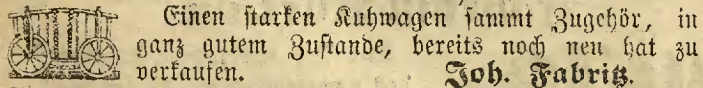 Einen starken Kuhwagen sammt Zugehör, in
ganz gutem Zustande, bereits noch neu hat zu
verkaufen. Joh. Fabritz.